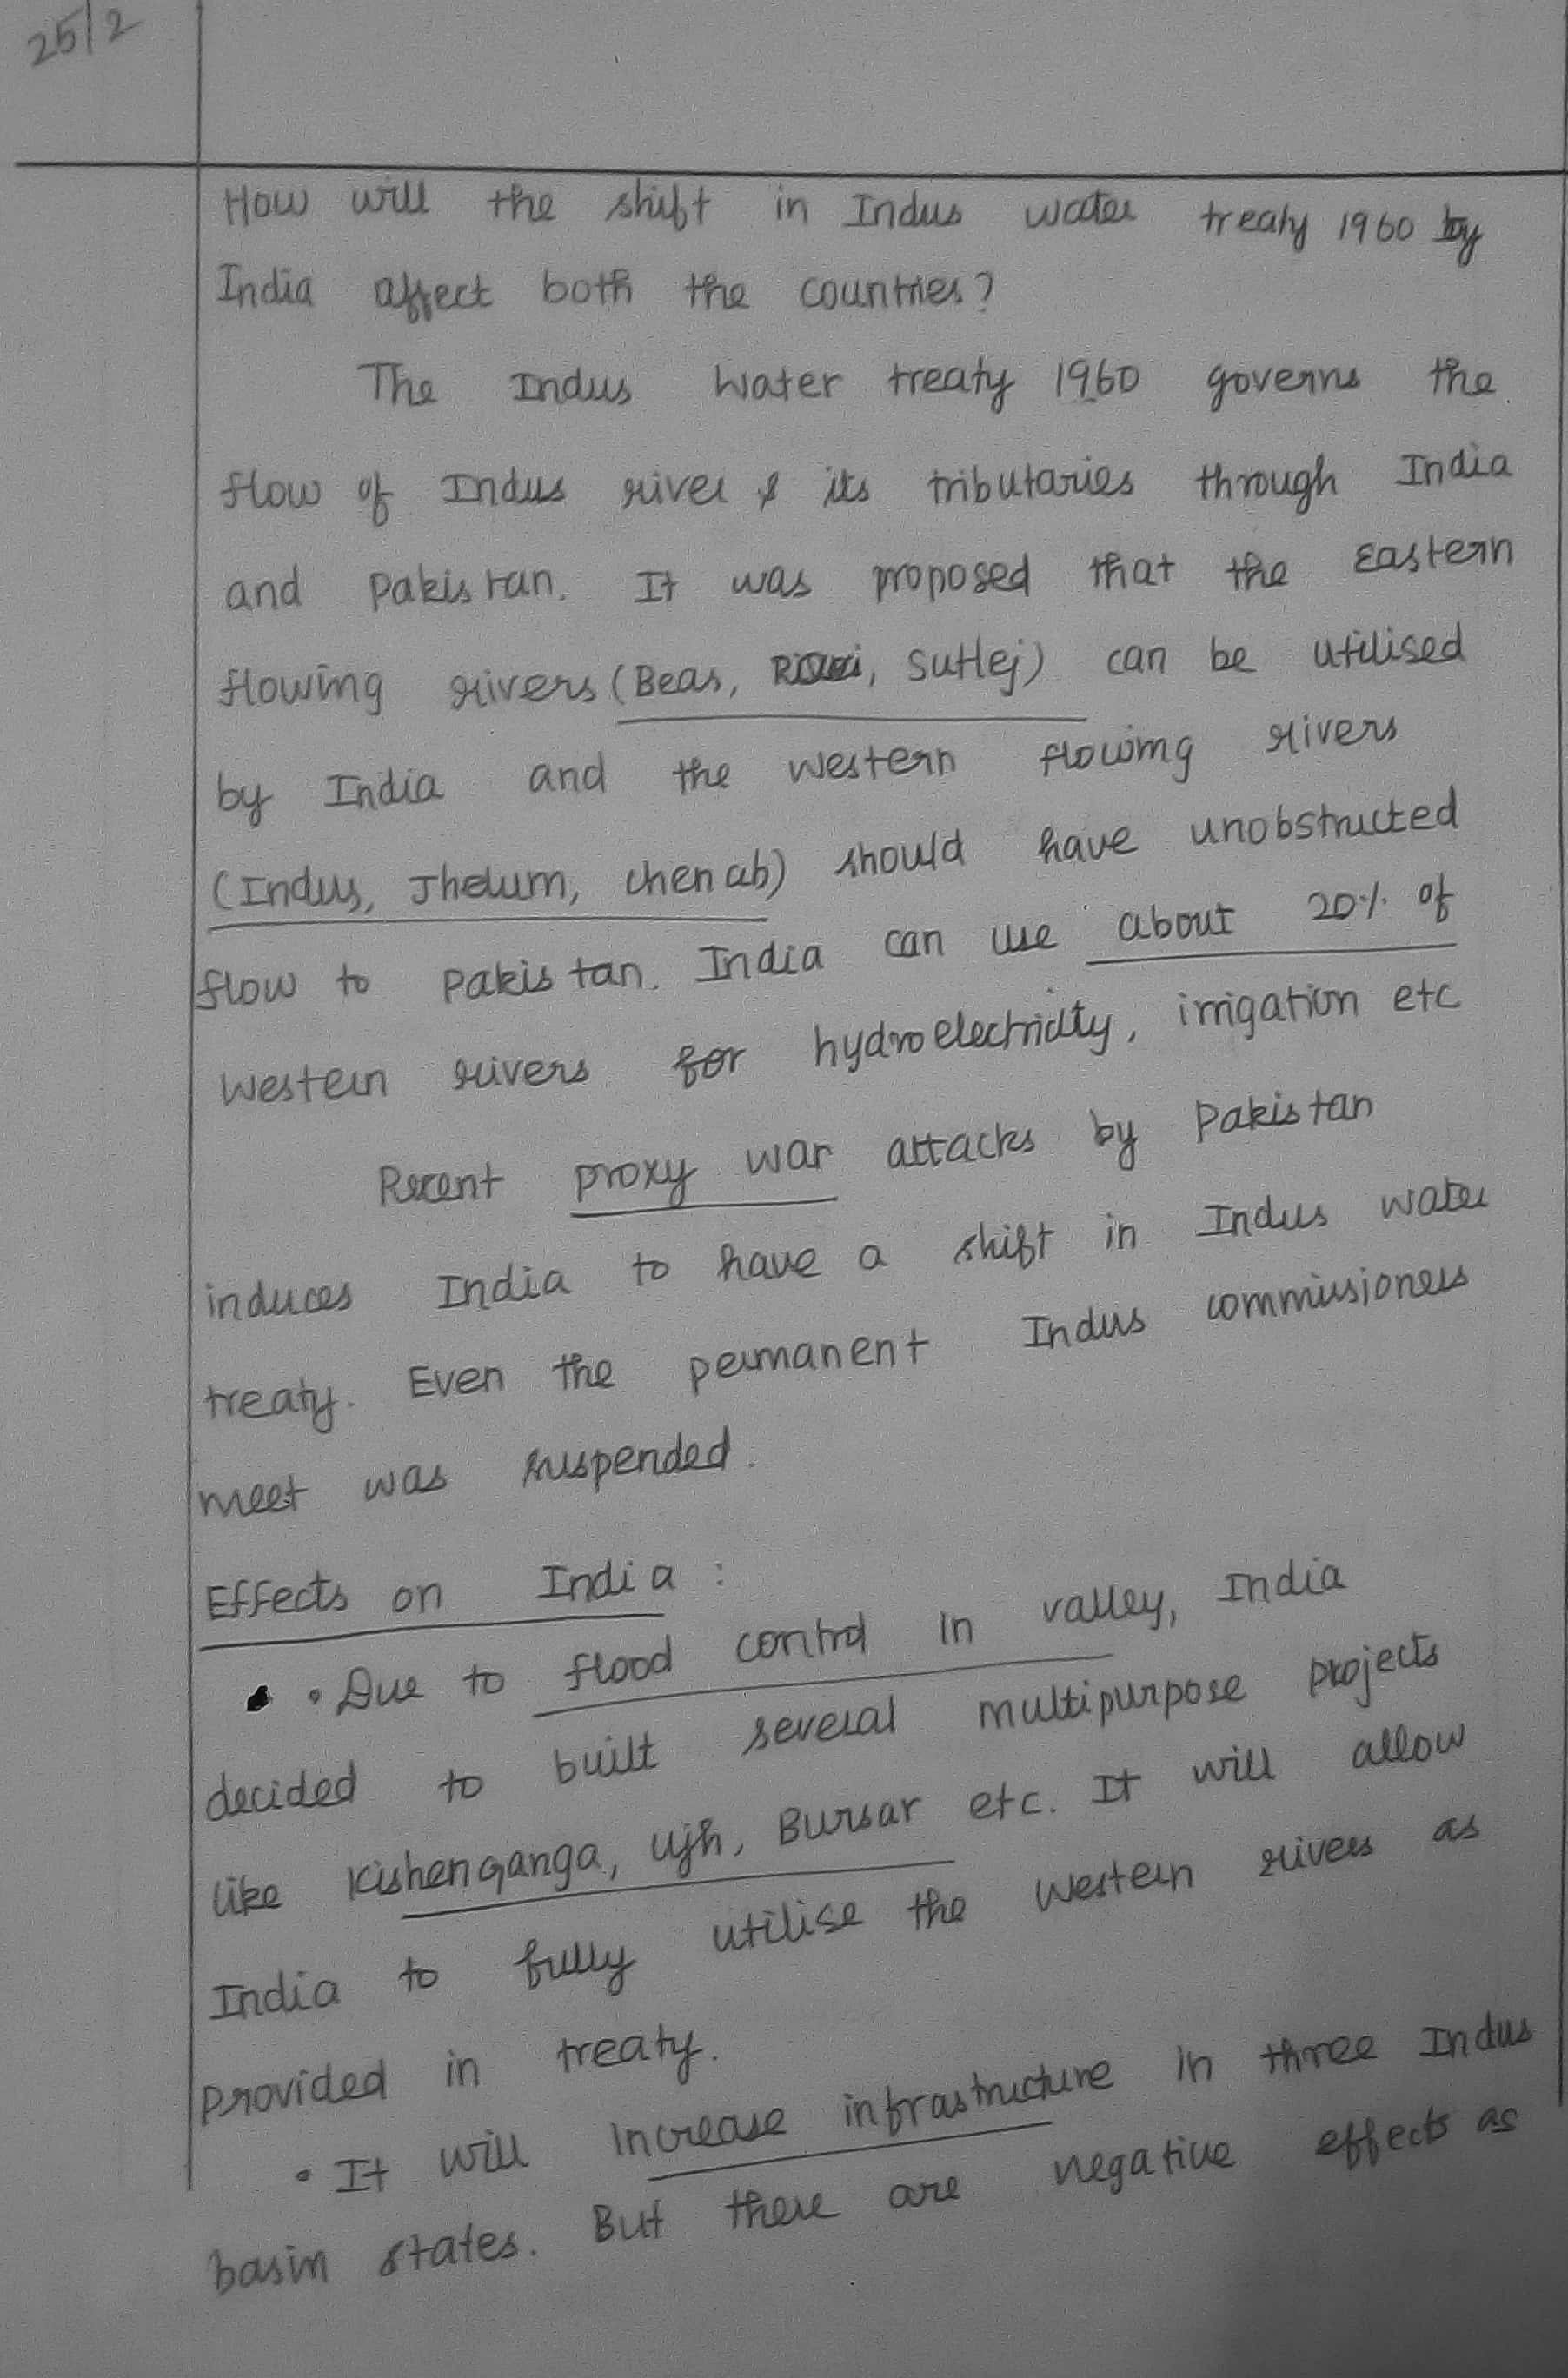 25/2
How will the shift in Indus water treaty 1960 by
India affect both the countries?
The Indus water treaty 1960 governs the
flow of Indus river & its tributaries through India
and Pakistan. It was proposed that the Eastern
flowing rivers (Beas, Ravi, Sutlej) can be utilised
by India and the western flowing rivers
(Indus, Jhelum, chenab) should have unobstructed
flow to Pakistan. India can use about 20% of
western rivers for hydroelectricity, irrigation etc
Recent proxy war attacks by Pakistan
induces India to have a shift in Indus water
treaty. Even the permanent Indus commissioners
meet was suspended.
Effects on India :
• Due to flood control in valley, India
decided to built several multipurpose projects
like Kishenganga, Ujh, Bursar etc. It will allow
India to fully utilise the western rivers as
provided in treaty.
• It will increase infrastructure in three Indus
basin states. But there are negative effects as